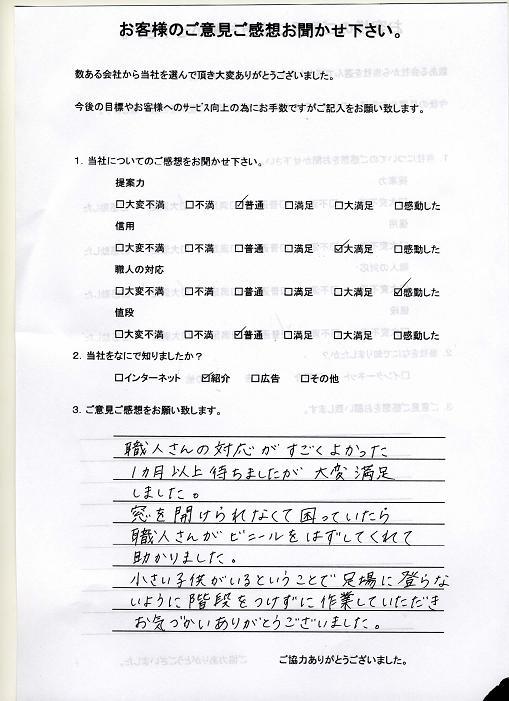 お客様のご意見ご感想お聞かせ下さい。
数ある会社から当社を選んで頂き大変ありがとうございました。
今後の目標やお客様へのサービス向上の為にお手数ですがご記入をお願い致します。
1．当社についてのご感想をお聞かせ下さい。
提案力
□大変不満 □不満 ☑普通 □満足 □大満足 □感動した
信用
□大変不満 □不満 □普通 □満足 ☑大満足 □感動した
職人の対応
□大変不満 □不満 □普通 □満足 □大満足 ☑感動した
値段
□大変不満 □不満 ☑普通 □満足 □大満足 □感動した
2．当社をなにで知りましたか？
□インターネット ☑紹介 □広告 □その他
3．ご意見ご感想をお願い致します。
職人さんの対応がすごくよかった
1ヵ月以上待ちましたが大変満足
しました。
窓を開けられなくて困っていたら
職人さんがビニールをはずしてくれて
助かりました。
小さい子供がいるということで足場に登らな
いように階段をつけずに作業していただき
お気づかいありがとうございました。
ご協力ありがとうございました。